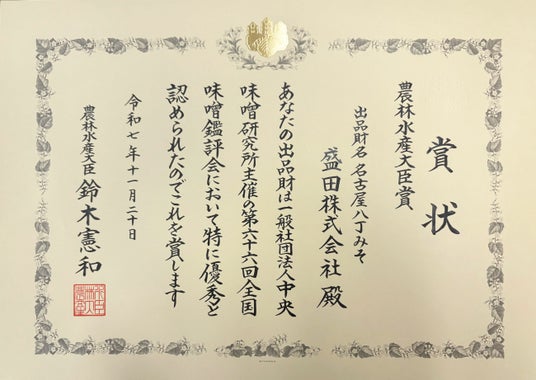 賞状
農林水産大臣賞
出品財名 名古屋八丁みそ
盛田株式会社 殿
あなたの出品財は一般社団法人中央
味噌研究所主催の第六十六回全国
味噌鑑評会において特に優秀と
認められたのでこれを賞します
令和七年十一月二十日
農林水産大臣 鈴木憲和